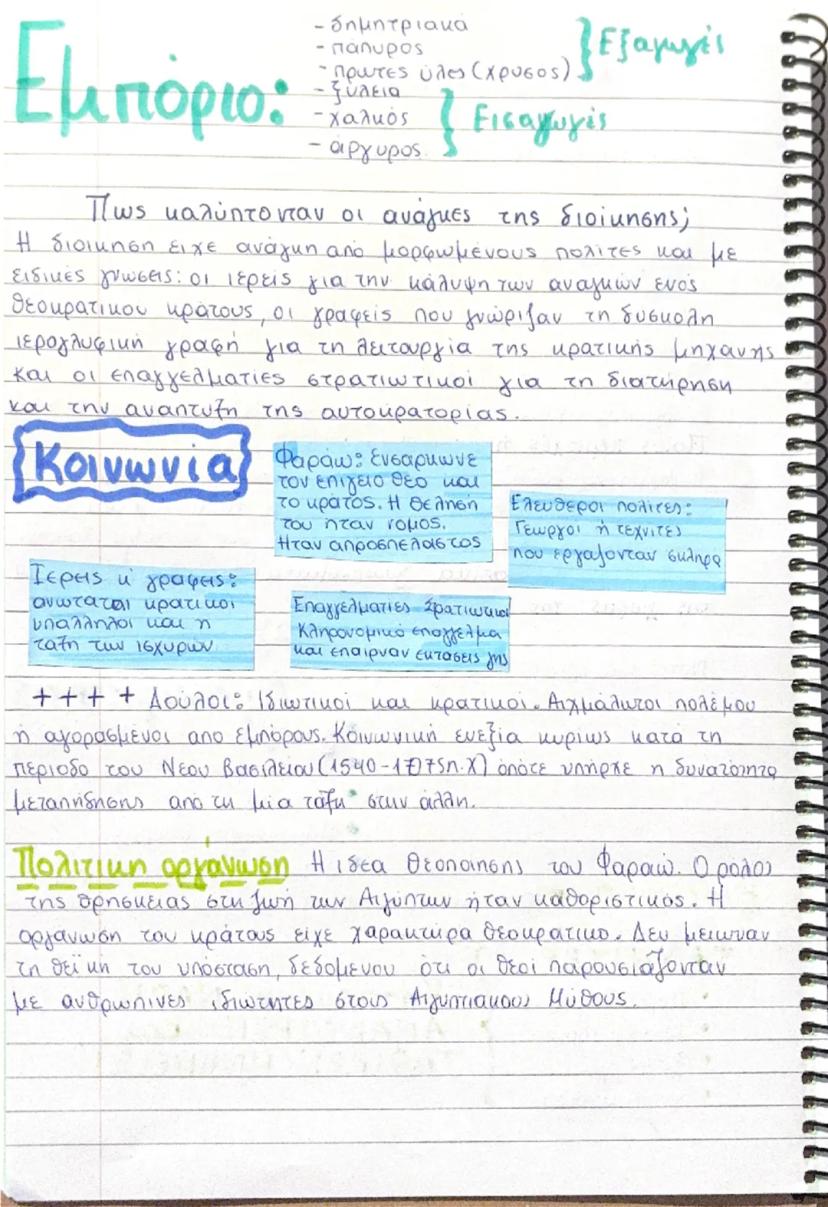 Εμπόριο:
- δημητριακά
- πάπυρος
- πρωτες ύλες (χρυσος)
Εξαγωγές
- ξύλεια
- χαλκός
- άργυρος
Εισαγωγές
Πως καλύπτονταν οι ανάγκες της διοίκησης;
Η διοικηση ειχε ανάγκη από μορφωμένους πολίτες και με
ειδικές γνώσεις: οι ιερείς για την κάλυψη των αναγκών ενός
θεοκρατικου κράτους, οι γραφείς που γνώριζαν τη δύσκολη
ιερογλυφική γραφή για τη λειτουργία της κρατικής μηχανής
και οι επαγγελματίες στρατιωτικοί για τη διατήρηση
και την αναπτυξη της αυτοκρατορίας.
Κοινωνία
Φαράω: Ενσαρκωνε
τον επιγειο θεο και
το κράτος. Η θελησή
του ηταν νομος.
Ηταν απροσπελαστος
Ελευθεροι πολίτες:
Γεωργοι ή τεχνιτες
που εργαζονταν σκληρα
Ιερεις κ' γραφεις:
ανωτατοι κρατικοι
υπαλληλοι και η
ταξη των ισχυρών
Επαγγελματιες Στρατιωτικοι
Κληρονομικό επαγγελμα
και επαιρναν εκτάσεις γης
++++ Δούλοι: Ιδιωτικοί και κρατικοί. Αιχμάλωτοι πολέμου
ή αγορασμένοι απο εμπόρους. Κοινωνική ευεξία κυρίως κατά τη
περίοδο του Νεου Βασιλείου (1540-1075π.Χ) οπότε υπήρχε η δυνατότητα
μεταπήδησης απο τη μία τάξη στην άλλη.
Πολιτικη οργάνωση Η ιδεα θεοποιησης του Φαραώ. Ο ρολος
της θρησκειας στη ζωή των Αιγύπτιων ήταν καθοριστικος. Η
οργάνωση του κράτους είχε χαρακτήρα θεοκρατικο. Δεν μειωναν
τη θεϊκη του υπόσταση, δεδομενου ότι οι θεοί παρουσιάζονταν
με ανθρωπινες ιδιωτητες στους Αιγυπτιακους Μύθους.